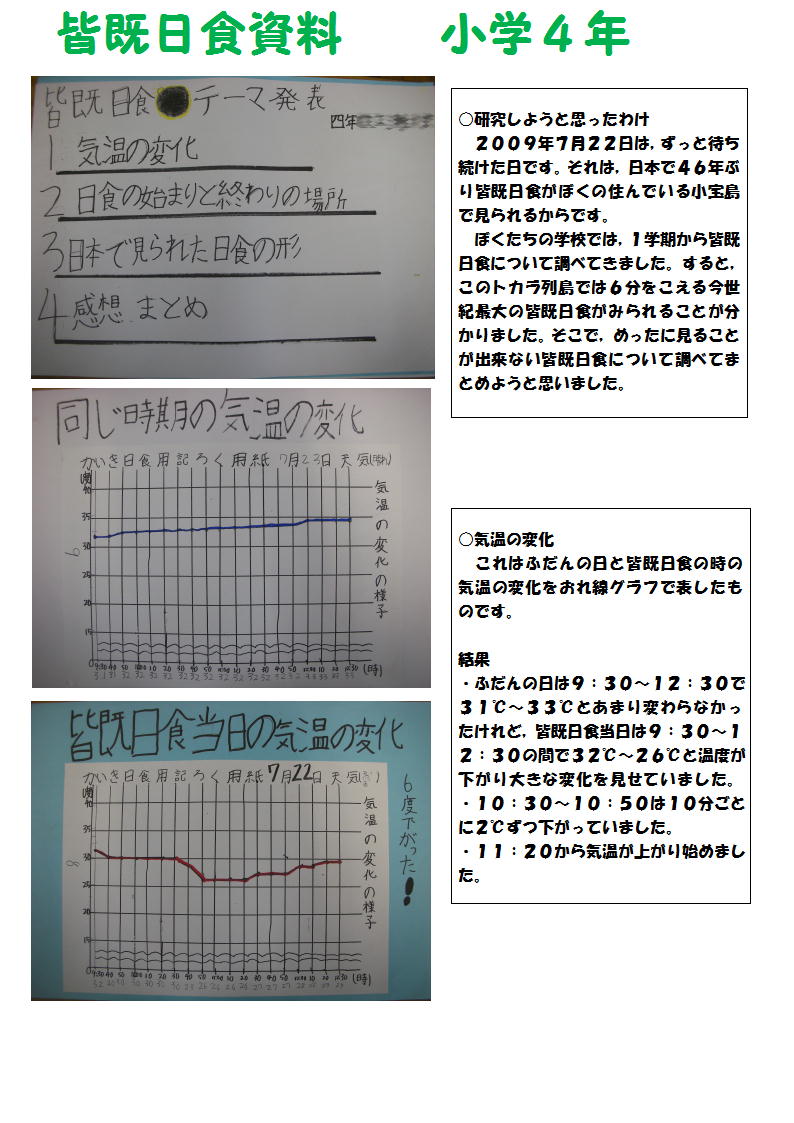 皆既日食資料 小学４年
皆既日食 テーマ発表
四年
1 気温の変化
2 日食の始まりと終わりの場所
3 日本で見られた日食の形
4 感想 まとめ
○研究しようと思ったわけ
２００９年７月２２日は，ずっと待ち
続けた日です。それは，日本で４６年ぶ
り皆既日食がぼくの住んでいる小宝島
で見られるからです。
ぼくたちの学校では，１学期から皆既
日食について調べてきました。すると，
このトカラ列島では６分をこえる今世
紀最大の皆既日食がみられることが分
かりました。そこで，めったに見ること
が出来ない皆既日食について調べてま
とめようと思いました。
同じ時期の気温の変化
かいき日食用記ろく用紙 7月23日 天気(晴れ)
気温の変化の様子
40
35
30
25
20
15
0
(時)
○気温の変化
これはふだんの日と皆既日食の時の
気温の変化をおれ線グラフで表したも
のです。
結果
・ふだんの日は９：３０～１２：３０で
３１℃～３３℃とあまり変わらなかっ
たけれど，皆既日食当日は９：３０～１
２：３０の間で３２℃～２６℃と温度が
下がり大きな変化を見せていました。
・１０：３０～１０：５０は１０分ごと
に２℃ずつ下がっていました。
・１１：２０から気温が上がり始めまし
た。
皆既日食当日の気温の変化
かいき日食用記ろく用紙 7月22日 天気
気温の変化の様子
6度下がった！
40
35
30
25
20
15
0
(時)